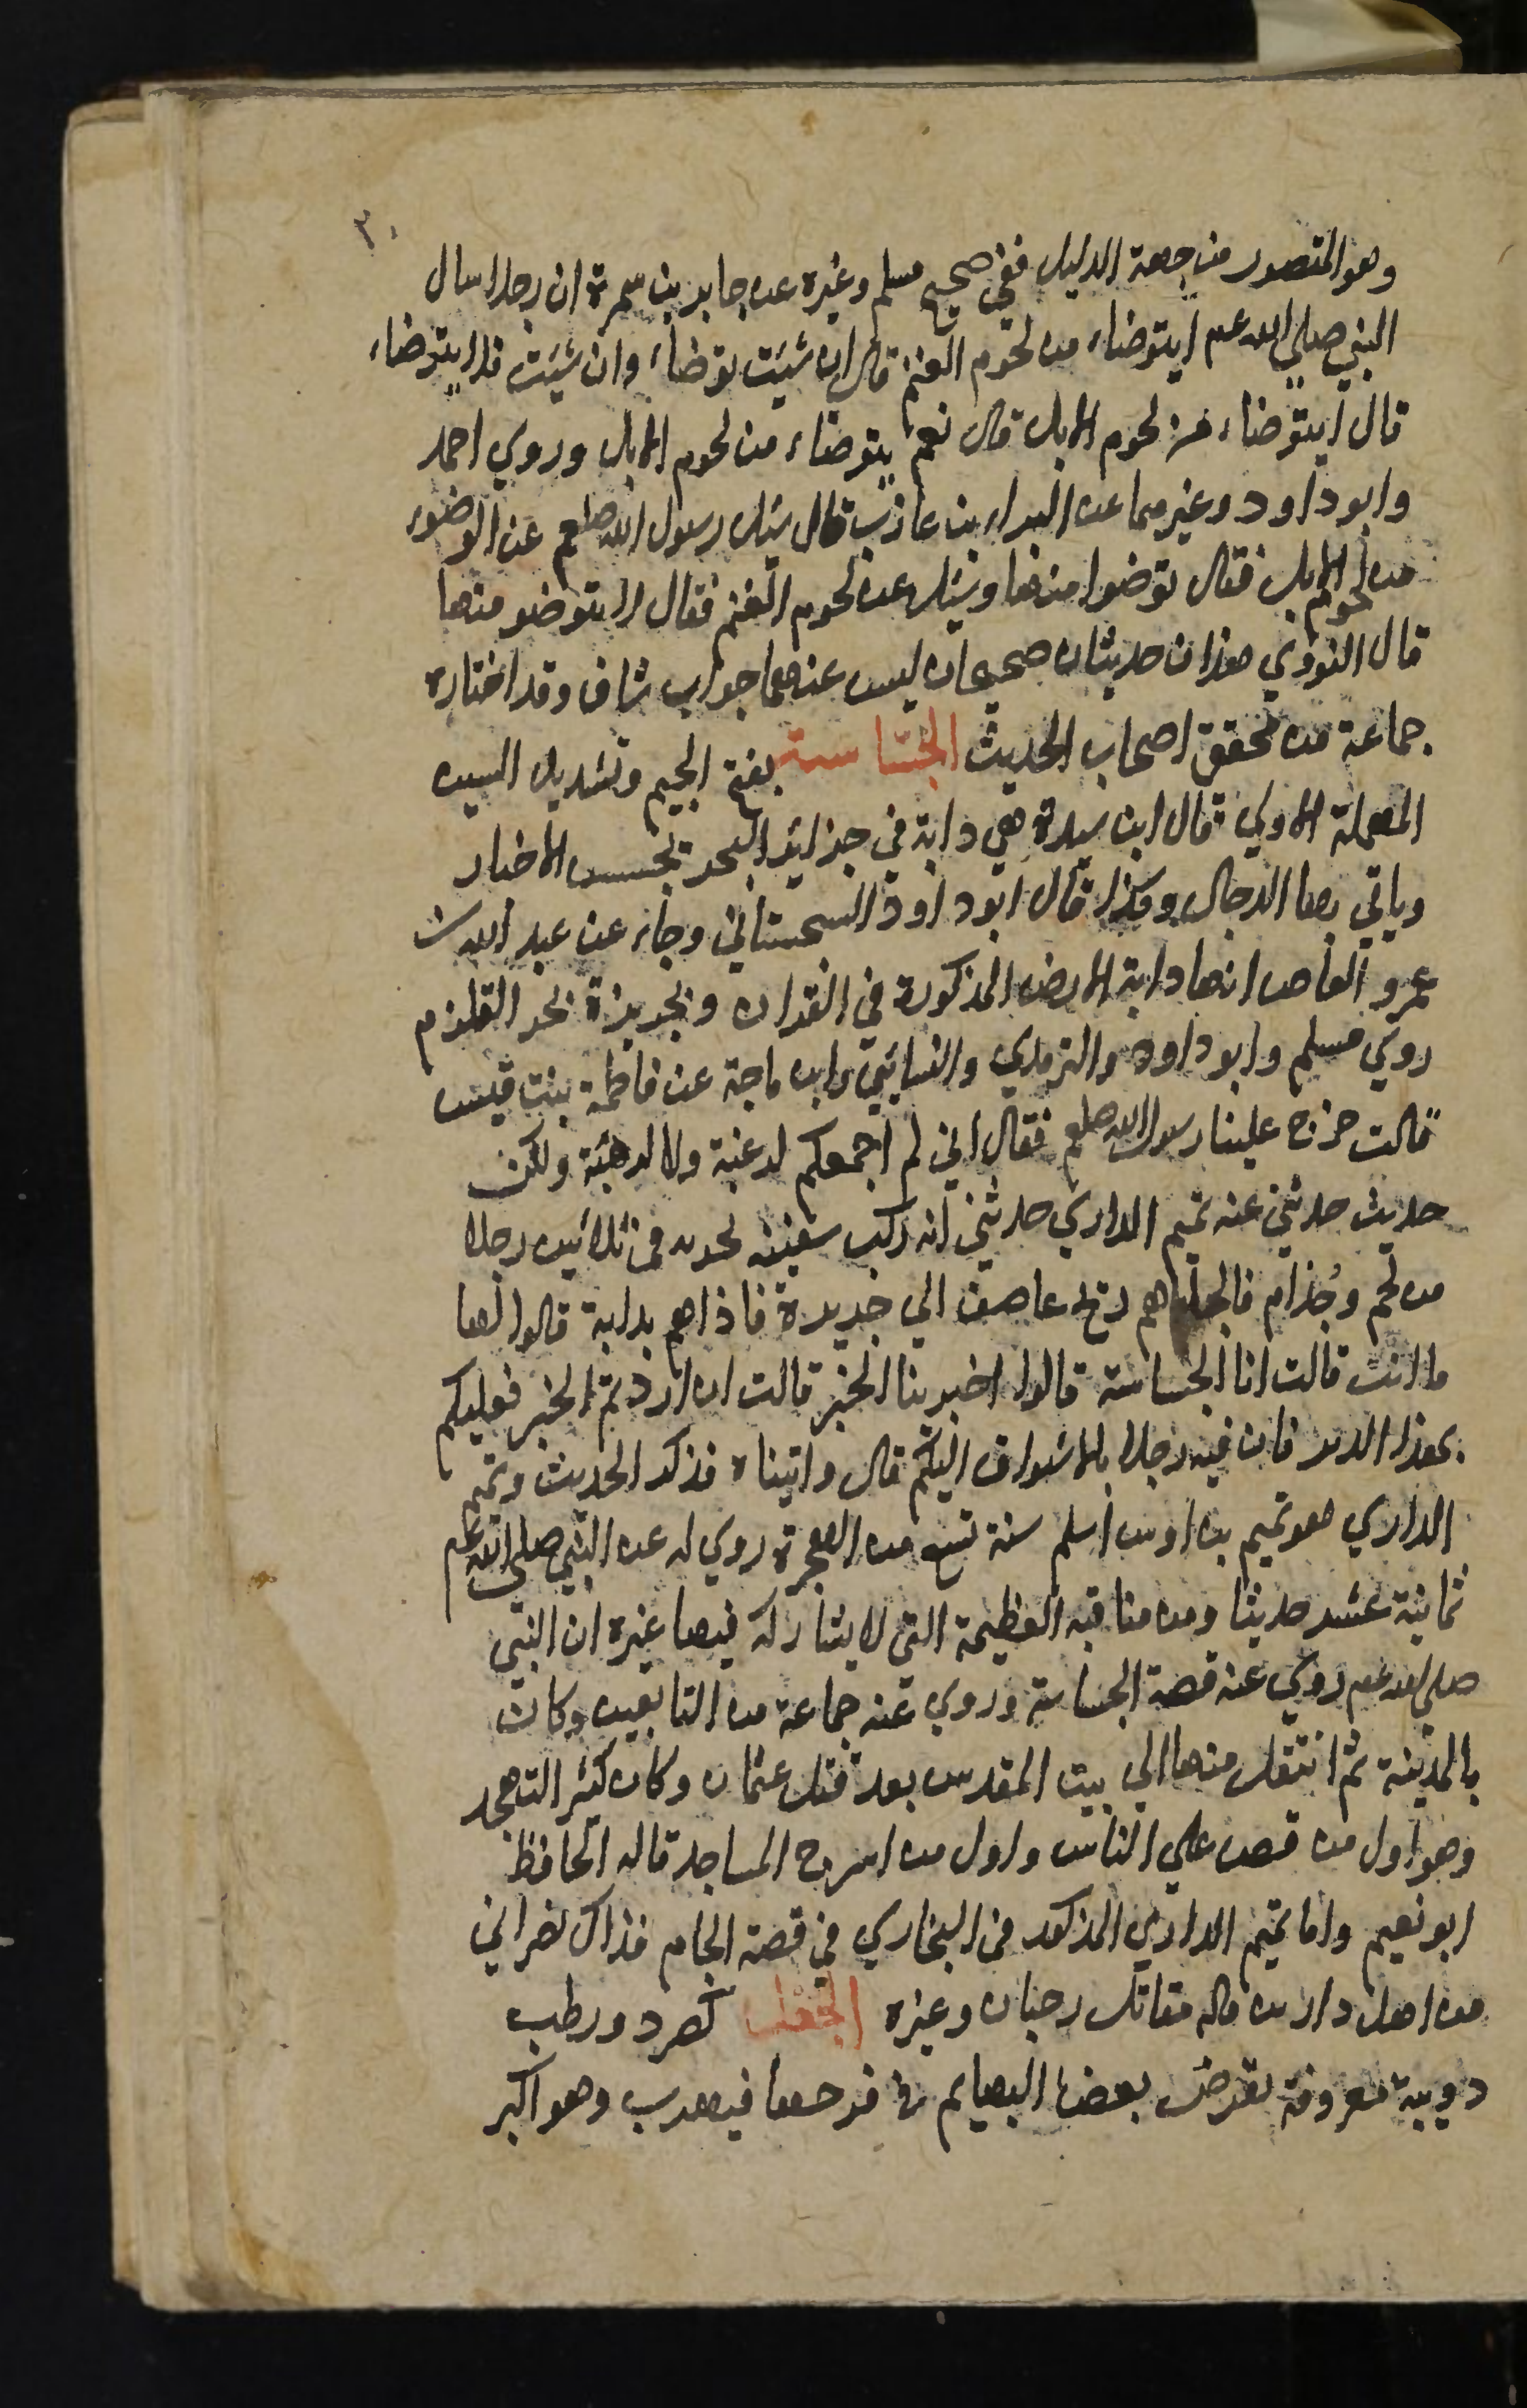 ٣٠
وهو المنصور من جهة الدليل ففي صحيح مسلم وغيره عن جابر بن سمرة ان رجلا سال
النبي صلي الله عم ايتوضاء من لحوم الغنم قال ان شيئت توضاء وان شيئت فلا يتوضاء
قال ايتوضاء من لحوم الابل قال نعم يتوضاء من لحوم الابل وروي احمد
وابو داود وغيرهما عن البراء بن عازب قال سئل رسول الله صلعم عن الوضوء
من لحوم الابل فقال توضوا منها وسئل عن لحوم الغنم فقال لا يتوضو منها
قال النووي هذان حديثان صحيحان ليس عنهما جواب شاف وقد اختاره
جماعة من محقق اصحاب الحديث الجسّاسة بفتح الجيم وتشديد السين
المهملة الاولي قال ابن سيدة هي دابة في جزائر البحر تجسس الاخبار
وياتي بها الدجال وكذا قال ابو داود السجستاني وجاء عن عبد الله بن
عمرو العاص انها دابة الارض المذكورة في القران وبجزيرة بحر القلزم
روي مسلم وابو داود والترمذي والنسائي وابن ماجة عن فاطمة بنت قيس
قالت خرج علينا رسول الله صلعم فقال اني لم اجمعكم لرغبة ولا لرهبة ولكن
حديث حدثني عنه تميم الداري حدثني انه ركب سفينة بحرية في ثلاثين رجلا
من لخم وجُذام فالجاهم ريح عاصف الي جزيرة فاذا هم بدابة قالوا لها
ما انت قالت انا الجساسة قالوا اخبرينا الخبر قالت ان اردتم الخبر فعليكم
بهذا الدير فان فيه رجلا بالاشواق اليكم قال واتيناه فذكر الحديث وتميم
الداري هو تميم بن اوس اسلم سنة تسع من الهجرة روي له عن النبي صلي الله عم
ثمانية عشر حديثا ومن مناقبه العظيمة التي لا يشاركه فيها غيره ان النبي
صلي الله عم روي عنه قصة الجساسة وروي عنه جماعة من التابعين وكان
بالمدينة ثم انتقل منها الي بيت المقدس بعد قتل عثمان وكان كثير التهجد
وهو اول من قص علي الناس واول من اسرج المساجد قاله الحافظ
ابو نعيم واما تميم الداري المذكور في البخاري في قصة الجام فذاك نصراني
من اهل دارين قاله مقاتل رحبان وغيره الجعل كصرد ورطب
دويبة معروفة تعرض بعض البهايم في فرجها فيهرب وهو اكبر